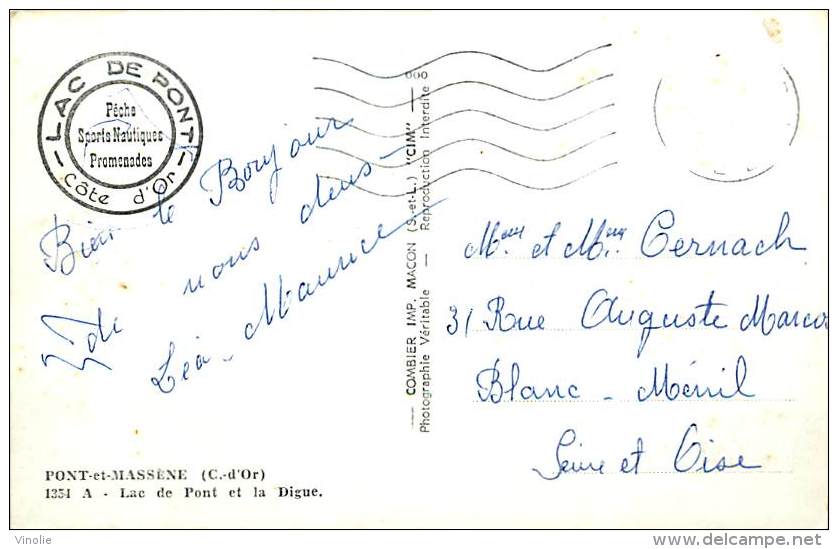 LAC DE PONT
Pêche
Sports Nautiques
Promenades
Côte d'Or
Bien le Bonjour
de nous deux -
Léa - Maurice
COMBIER IMP. MACON (S.-et-L.) "CIM"
Photographie Véritable — Reproduction Interdite
Mme et Mr Cernach
31 Rue Auguste Marcos
Blanc - Ménil
Seine et Oise
PONT-et-MASSÈNE (C.-d'Or)
1354 A - Lac de Pont et la Digue.
Vinolie
http://www.delcampe.net